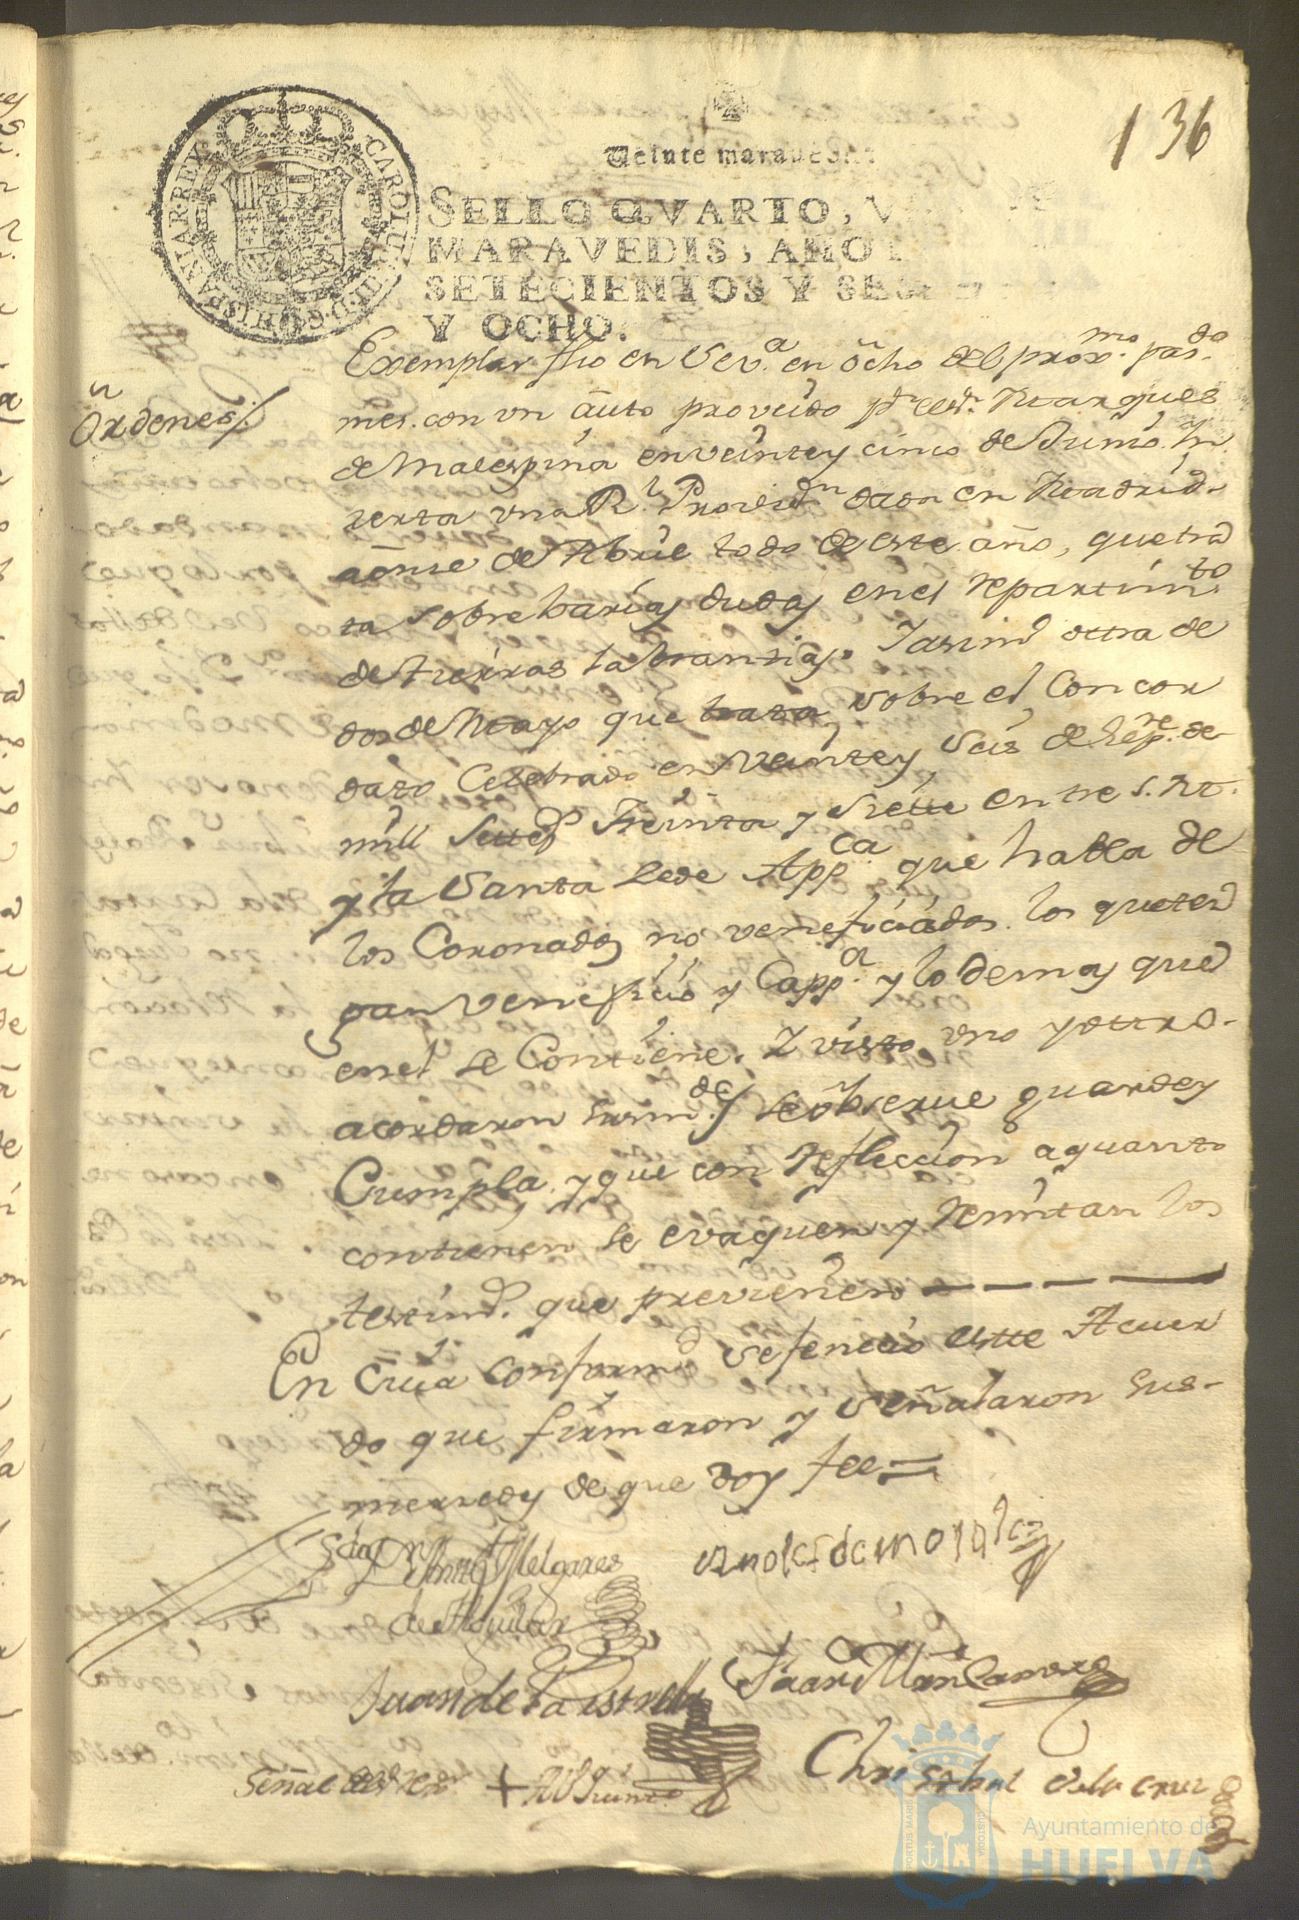 136
CAROLUS III D G HISPANIAR REX
Veinte maravedis
SELLO QVARTO, V
MARAVEDIS, AÑO
SETECIENTOS Y SES
Y OCHO.
Ordenes
Exemplar fho en Sev.ª en ocho del prox.mo pas.do
mes. con un auto proveido p.r el Sr. Marques
de Malespina en veinte y cinco de Junio. In
serta una R.l Provis.n dada en Madrid
a onse de Abril todo de este año, que tra
ta sobre barias dudas en el repartim.to
de tierras labrantias. Y asim.o ottra de
dos de Mayo que trata sobre el Concor
dato Celebrado en veinte y seis de Sep.re de
mill Settes Treinta y Siette entre S. M.
y la Santa Sede App.ca que habla de
los Coronados no veneficiados. los que ten
gan veneficio y Capp.ª y lo demas que
en el se Contiene. Y visto uno y ottro
acordaron sus m.des se observe guarde y
Cumpla, y que con reflección a quanto
contienen se evaquen y remitan los
testim.s que previenen
En cuia conform.d se feneció estte Acuer
do que firmaron y señalaron sus
mercedes de que doy fee
Melgares
de Aguilar
Andres de morales
Juan de la estrella
Juan Manzanero
Señal del +
Christobal de la cruz
Ayuntamiento de
HUELVA
PORTUS MARIS
CUSTODIA